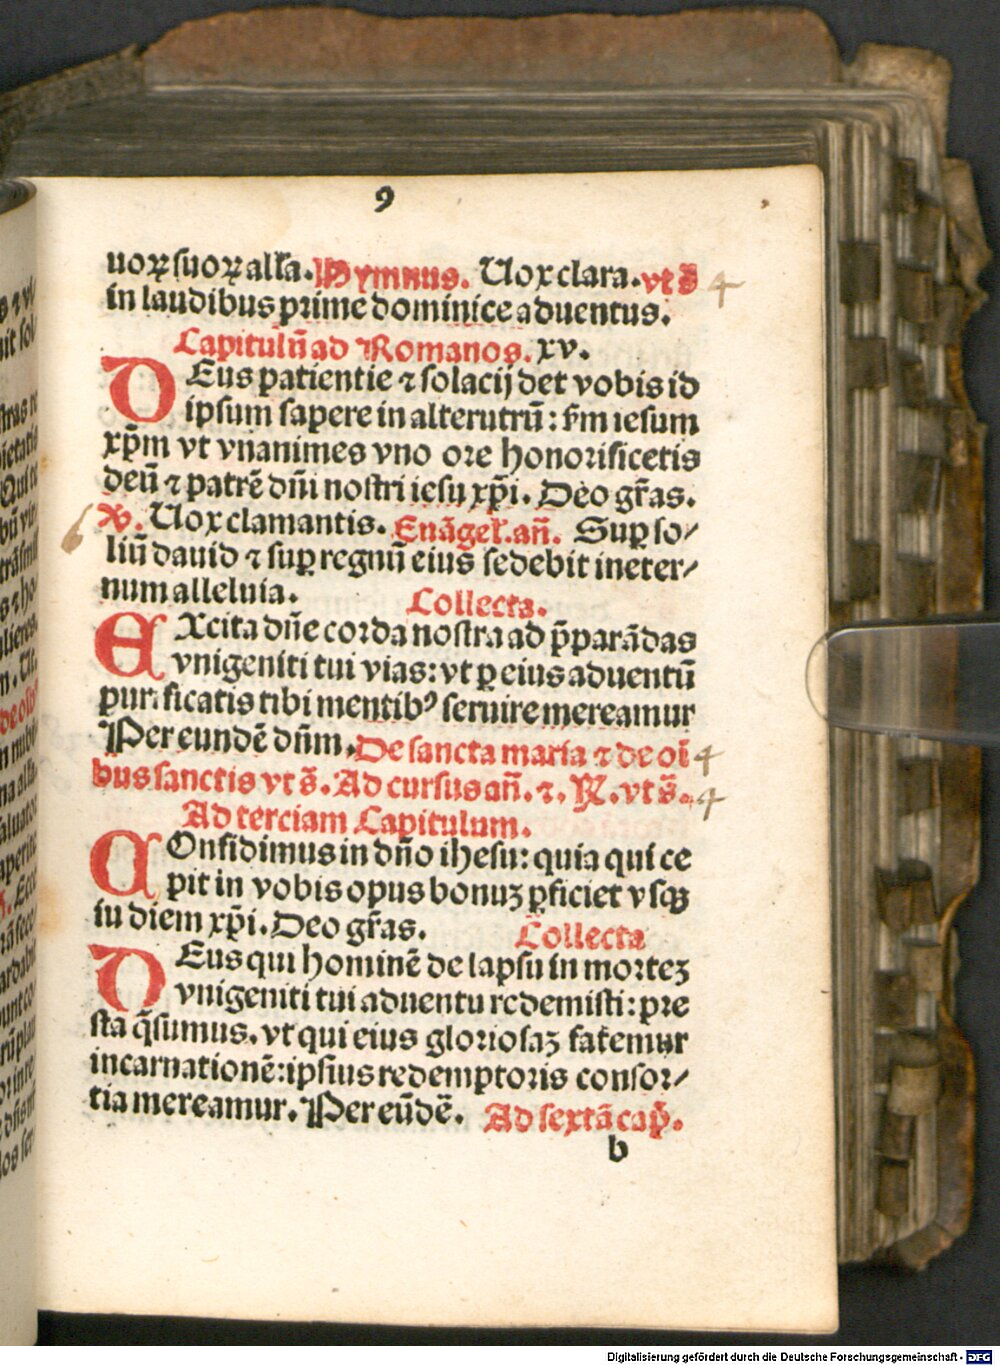 9
uoꝝ suoꝝ alľa. Hymnus. Uox clara. vt s̄ 4
in laudibus prime dominice aduentus.
Capitulū ad Romanos. xv.
DEus patientie ⁊ solacij det vobis id
ipsum sapere in alterutrū: ẜm iesum
xp̄m vt vnanimes vno ore honorificetis
deū ⁊ patrē dn̄i nostri iesu xp̄i. Deo gr̄as.
℣. Uox clamantis. Euāgeľ. an̄. Suꝑ so⸗
liū dauid ⁊ suꝑ regnū eius sedebit in eter⸗
num alleluia. Collecta.
EXcita dn̄e corda nostra ad p̄parādas
vnigeniti tui vias: vt ꝑ eius aduentū
purificatis tibi mentibꝰ seruire mereamur
Per eundē dn̄m. De sancta maria ⁊ de oī 4
bus sanctis vt s̄. Ad cursus an̄. ⁊. ℟. vt s̄. 4
Ad terciam Capitulum.
COnfidimus in dn̄o ihesu: quia qui ce
pit in vobis opus bonuꝫ ꝑficiet vsqꝫ
iu diem xp̄i. Deo gr̄as. Collecta
DEus qui hominē de lapsu in morteꝫ
vnigeniti tui aduentu redemisti: pre
sta q̄sumus. vt qui eius gloriosaꝫ fatemur
incarnationē: ipsius redemptoris consor⸗
tia mereamur. Per eūdē. Ad sextā cap̄.
b
Digitalisierung gefördert durch die Deutsche Forschungsgemeinschaft - DFG